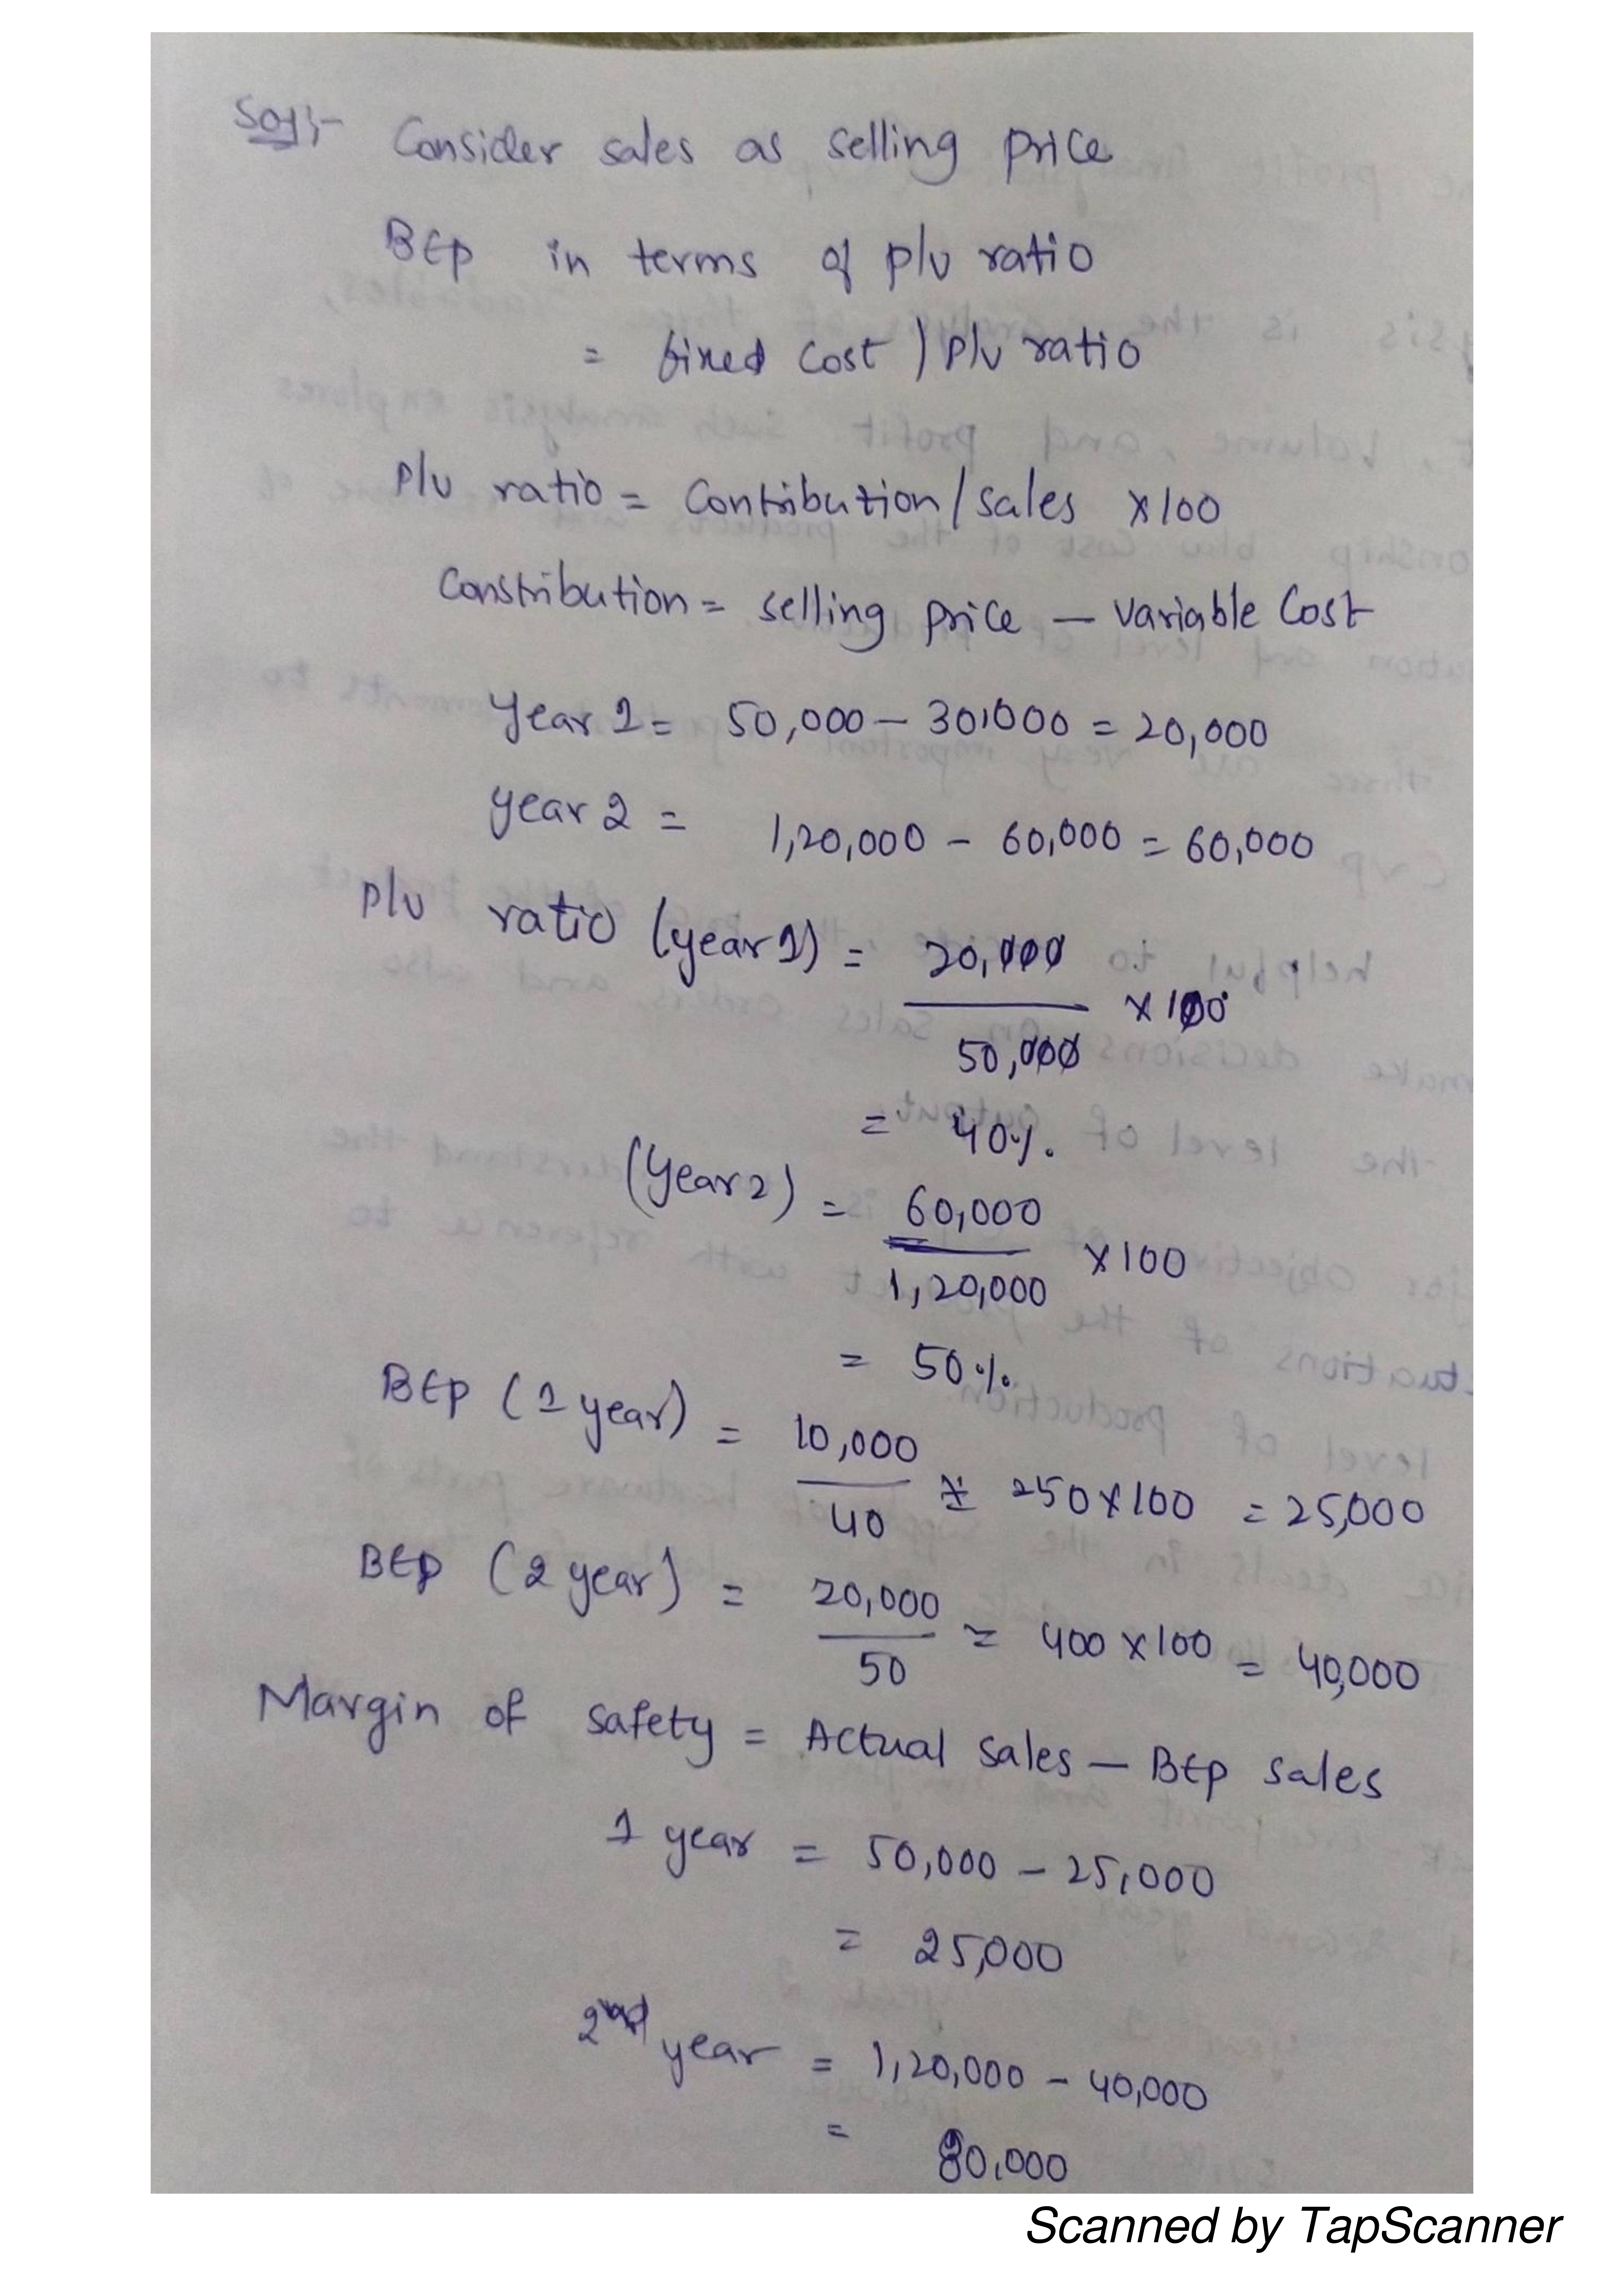 Sol:-  Consider sales as selling price
BEp in terms of p/v ratio
= fixed cost ) p/v ratio
p/v ratio = Contribution/sales ×100
Constribution = selling price – variable Cost
Year 1 = 50,000 – 30,000 = 20,000
year 2 = 1,20,000 – 60,000 = 60,000
p/v ratio (year 1) = 20,000
× 100
50,000
= 40%.
(Year 2) = 60,000
×100
1,20,000
= 50%.
BEp (1 year) = 10,000
= 250×100 = 25,000
40
BEp (2 year) = 20,000
= 400 ×100 = 40,000
50
Margin of safety = Actual sales – BEp sales
1 year = 50,000 – 25,000
= 25,000
2nd year = 1,20,000 – 40,000
= 80,000
Scanned by TapScanner